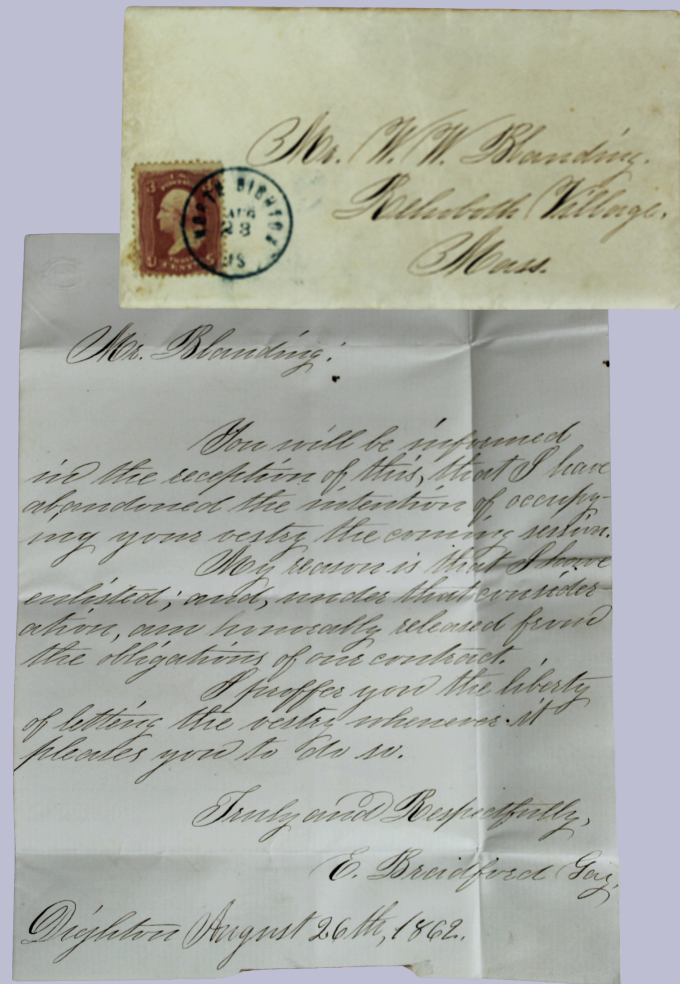 Mr. W. W. Blanding.
Rehoboth Village.
Mass.
NORTH DIGHTON
AUG
23
MS
3
3
Mr. Blanding:
You will be informed
in the reception of this, that I have
abandoned the intention of occupy-
ing your vestry the coming session.
My reason is that I have
enlisted; and, under that consider-
ation, am honorably released from
the obligations of our contract.
I proffer you the liberty
of letting the vestry whenever it
pleases you to do so.
Truly and Respectfully,
E. Bradford Gay,
Dighton August 26th, 1862.